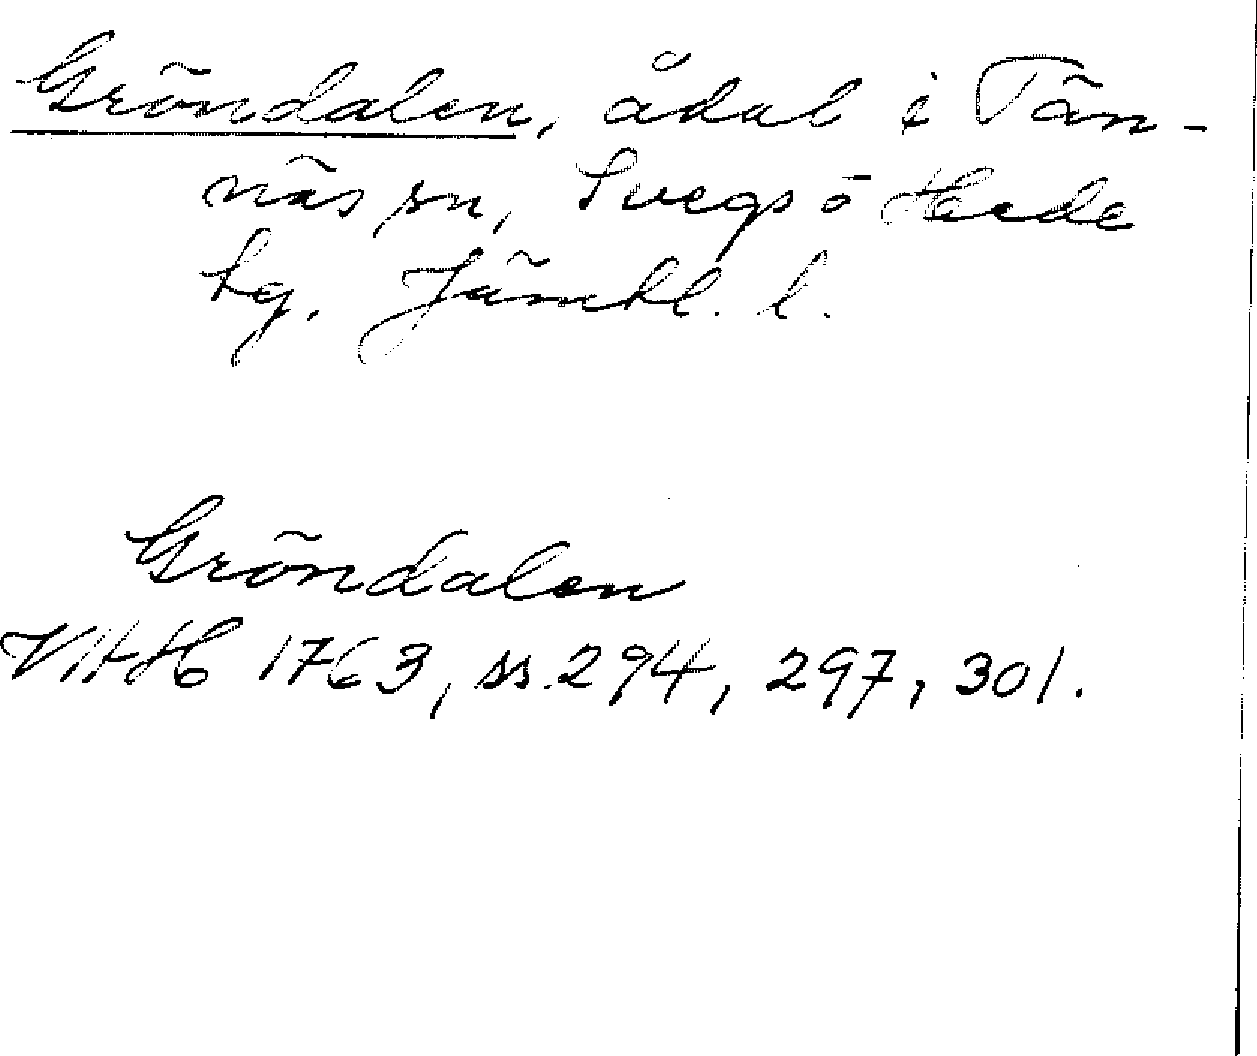 Gröndalen, ådal i Tän-
näs sn, Svegs o Hede
tg. Jämtl. l.
Gröndalen
VAH 1763, ss. 294, 297, 301.